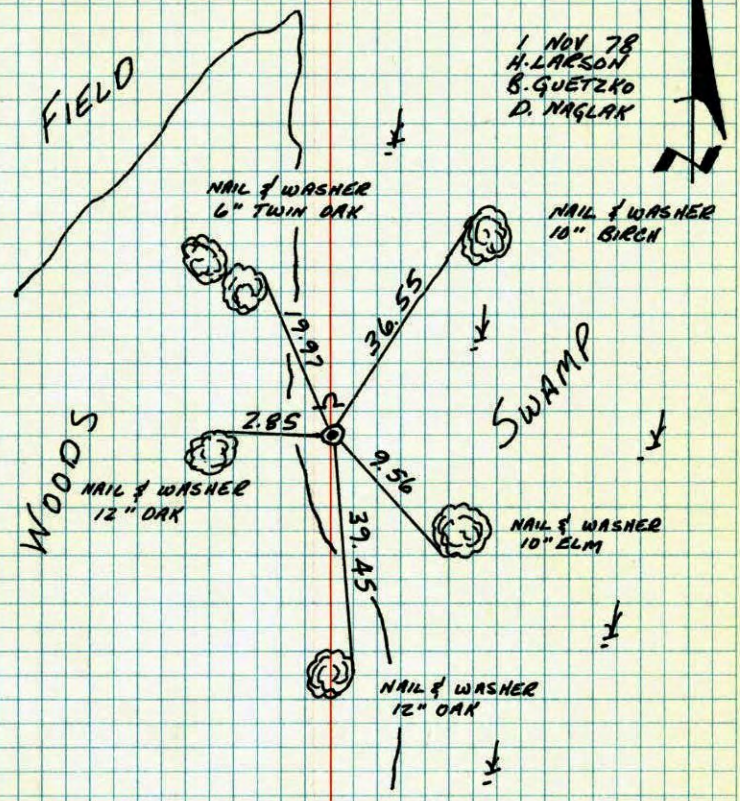 1 NOV 78
H. LARSON
B. GUETZKO
D. NAGLAK
FIELD
NAIL & WASHER
6" TWIN OAK
NAIL & WASHER
10" BIRCH
19.97
36.55
SWAMP
2.85
WOODS
NAIL & WASHER
12" OAK
9.56
NAIL & WASHER
10" ELM
39.45
NAIL & WASHER
12" OAK